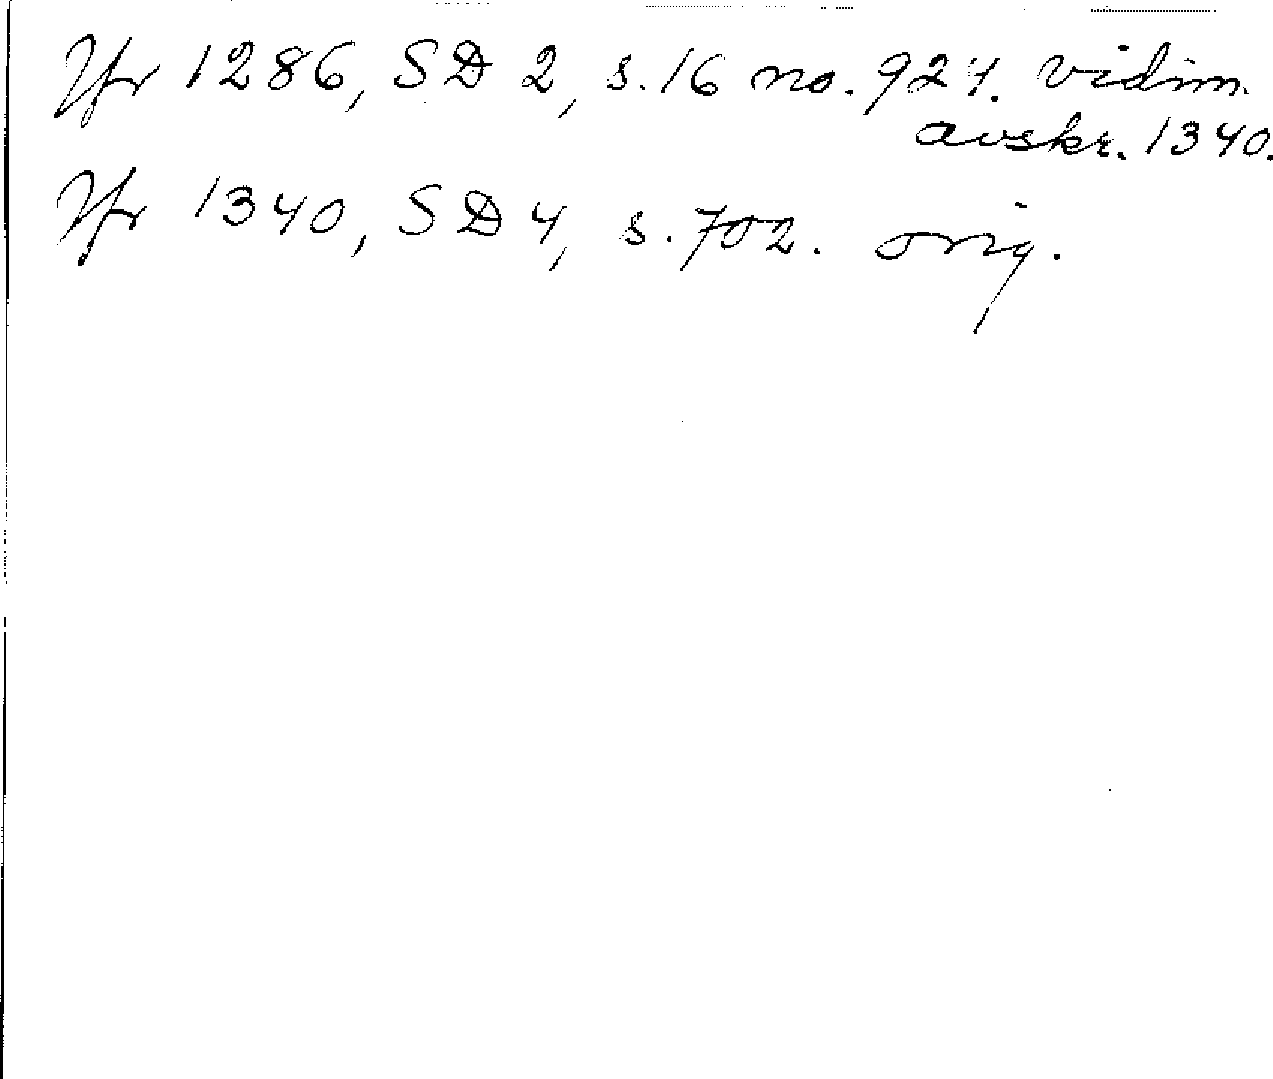 Yfr 1286, SD 2, s. 16 no. 924. vidim.
avskr. 1340.
Yfr 1340, SD 4, s. 702. orig.